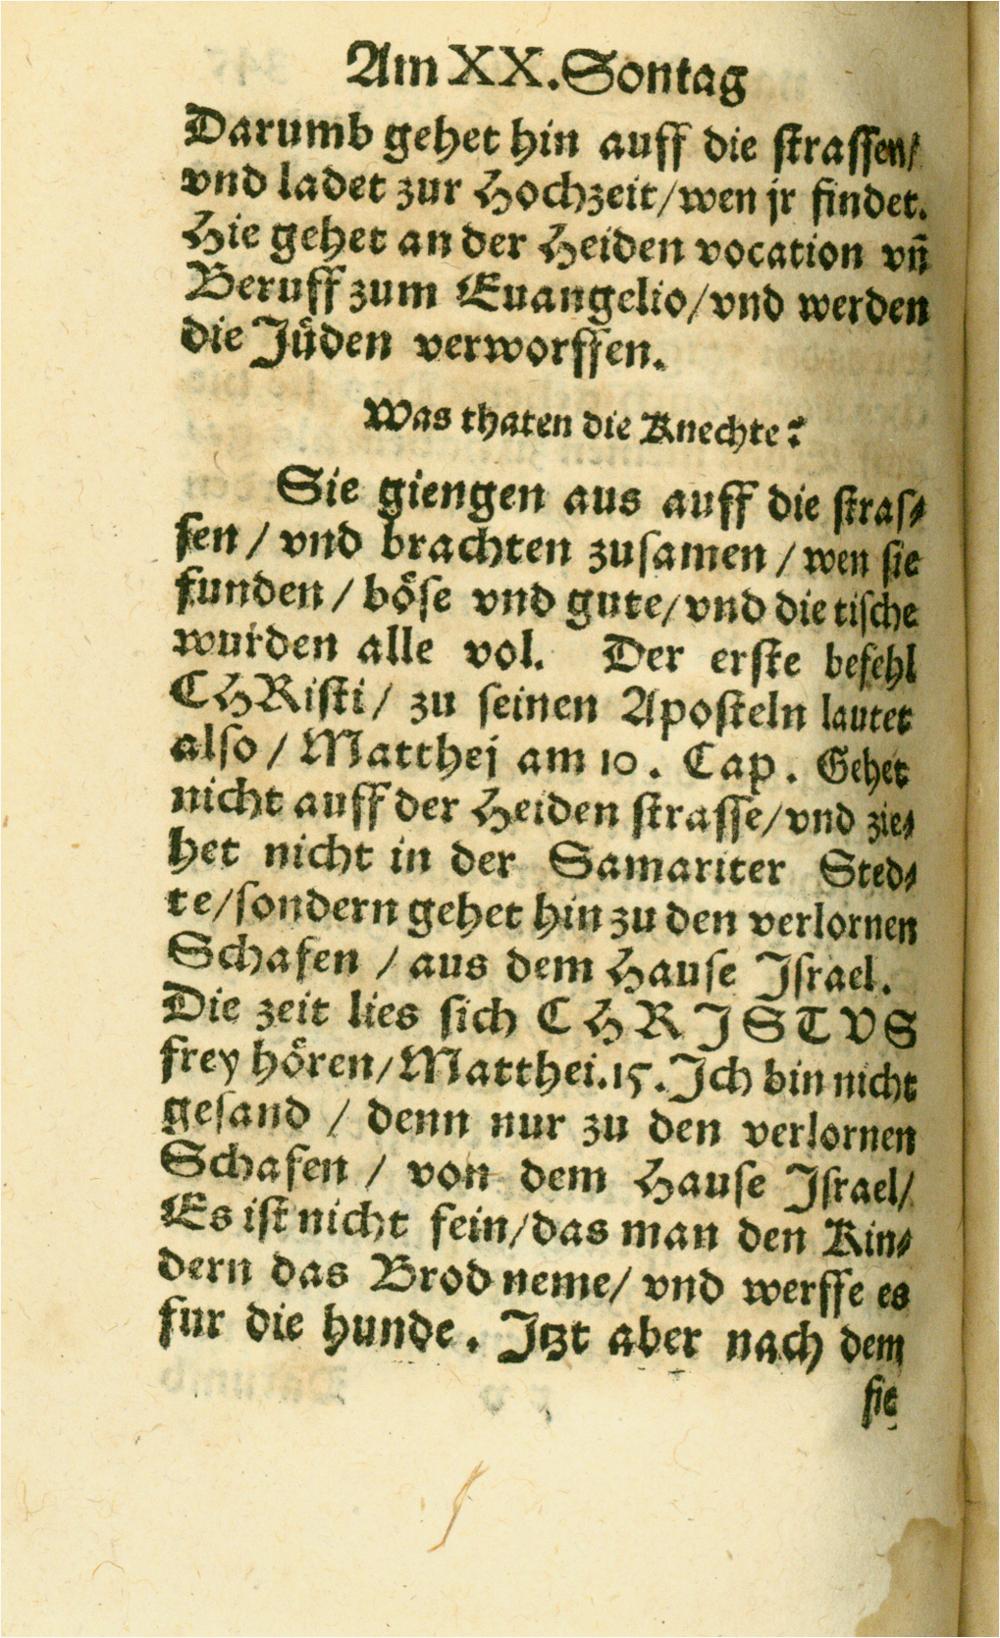 Am XX. Sontag
Darumb gehet hin auff die ſtraſſen/
vnd ladet zur Hochzeit/wen jr findet.
Hie gehet an der Heiden vocation vñ
Beruff zum Euangelio/vnd werden
die Jüden verworffen.
Was thaten die Knechte?
Sie giengen aus auff die ſtraſ⸗
ſen / vnd brachten zuſamen / wen ſie
funden / böſe vnd gute/vnd die tiſche
wurden alle vol. Der erſte befehl
CHRiſti/ zu ſeinen Apoſteln lautet
alſo / Matthej am 10. Cap. Gehet
nicht auff der Heiden ſtraſſe/vnd zie⸗
het nicht in der Samariter Sted⸗
te/ſondern gehet hin zu den verlornen
Schafen / aus dem Hauſe Iſrael.
Die zeit lies ſich CHRISTVS
frey hören/Matthei.15. Ich bin nicht
geſand / denn nur zu den verlornen
Schafen / von dem Hauſe Iſrael/
Es iſt nicht fein/das man den Kin⸗
dern das Brod neme/ vnd werffe es
fur die hunde. Itzt aber nach dem
ſie